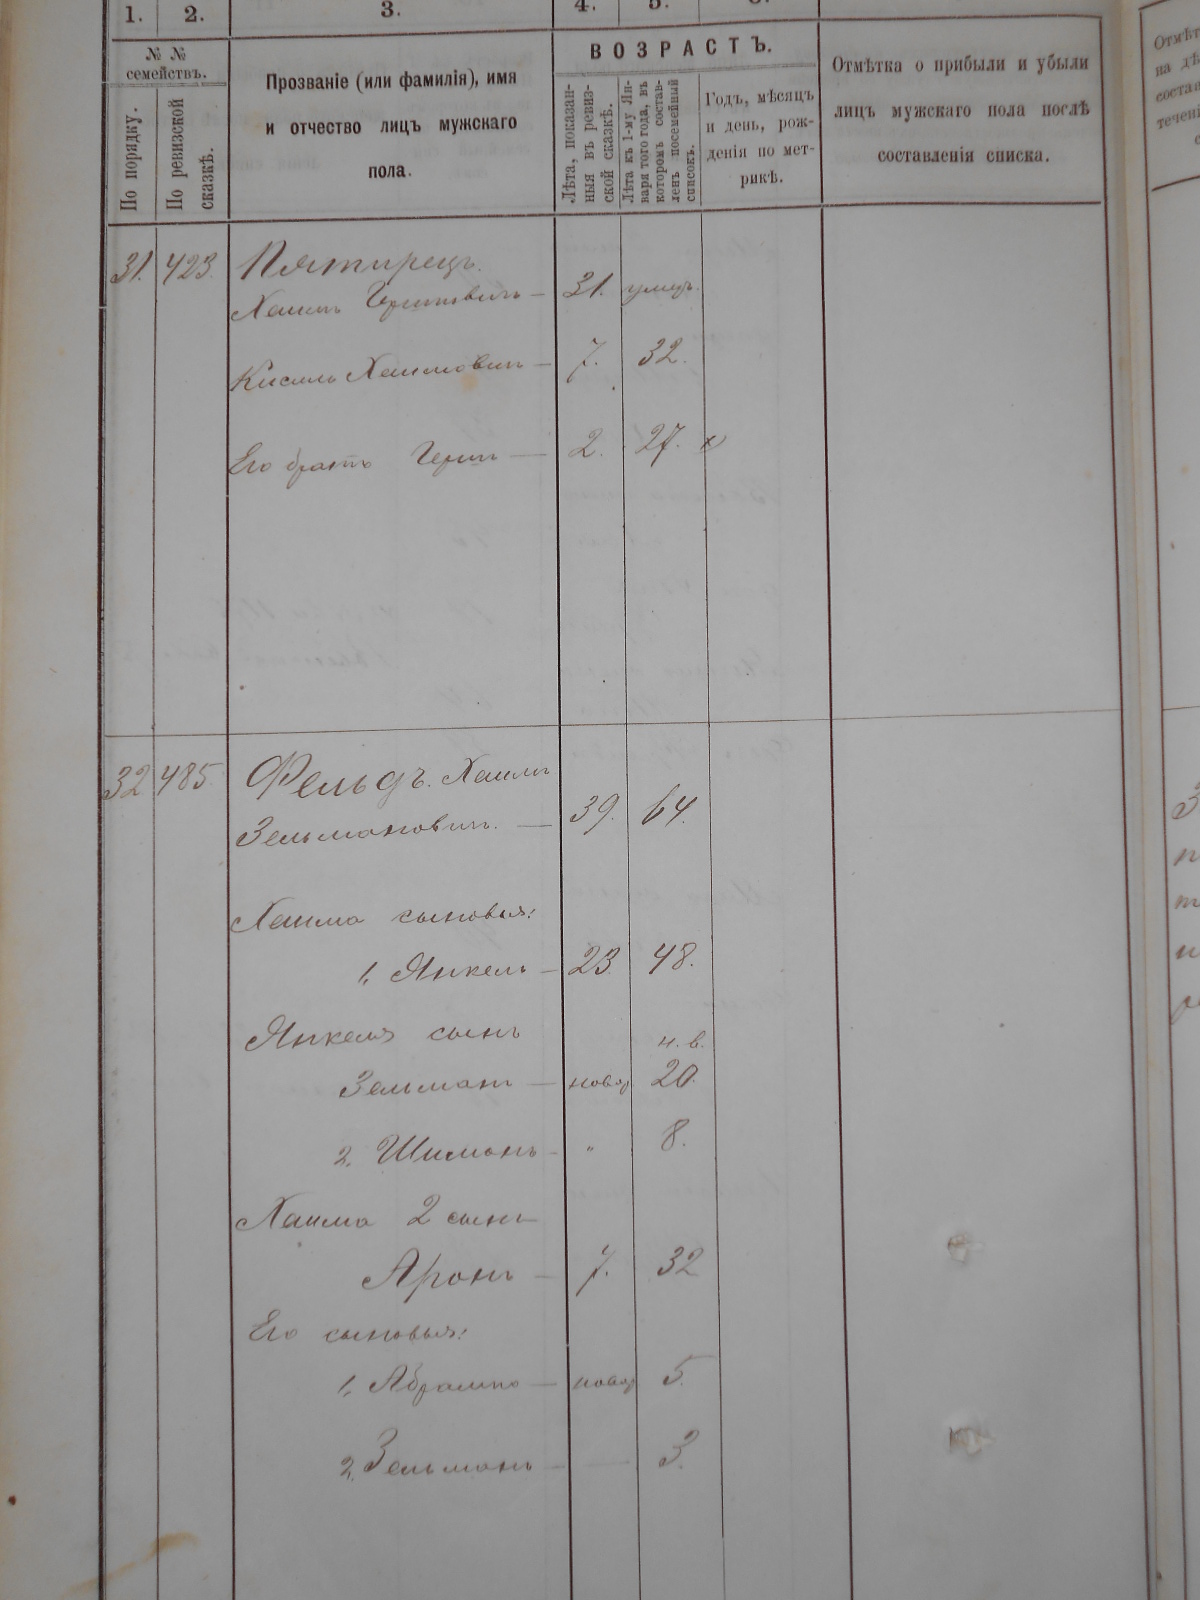 1. 2. 3. 4. 5. 6.
№ № семействъ.
По порядку.
По ревизской сказкѣ.
Прозваніе (или фамилія), имя
и отчество лицъ мужскаго
пола.
ВОЗРАСТЪ.
Лѣта, показан-
ныя въ ревиз-
ской сказкѣ.
Лѣта къ 1-му Ян-
варя того года, въ
которомъ состав-
ленъ посемейный
списокъ.
Годъ, мѣсяцъ
и день, рож-
денія по мет-
рикѣ.
Отмѣтка о прибыли и убыли
лицъ мужскаго пола послѣ
составленія списка.
Отмѣт
на дѣ
состав
течені
31. 423. Пятирецъ.
Хаимъ — 31. умеръ.
Кисель Хаимовичъ — 7. 32.
Его братъ — 2. 27.
32 485. Фельдъ. Хаимъ
Зельмановичъ. — 39. 64.
Хаима сыновья:
1. Янкель — 23. 48.
Янкеля сынъ н. в.
Зельманъ — новор 20.
2. Шиманъ - " 8.
Хаима 2 сынъ
Аронъ — 7. 32
Его сыновья:
1. Абрамко — новор 5.
2. Зельманъ — — 3.